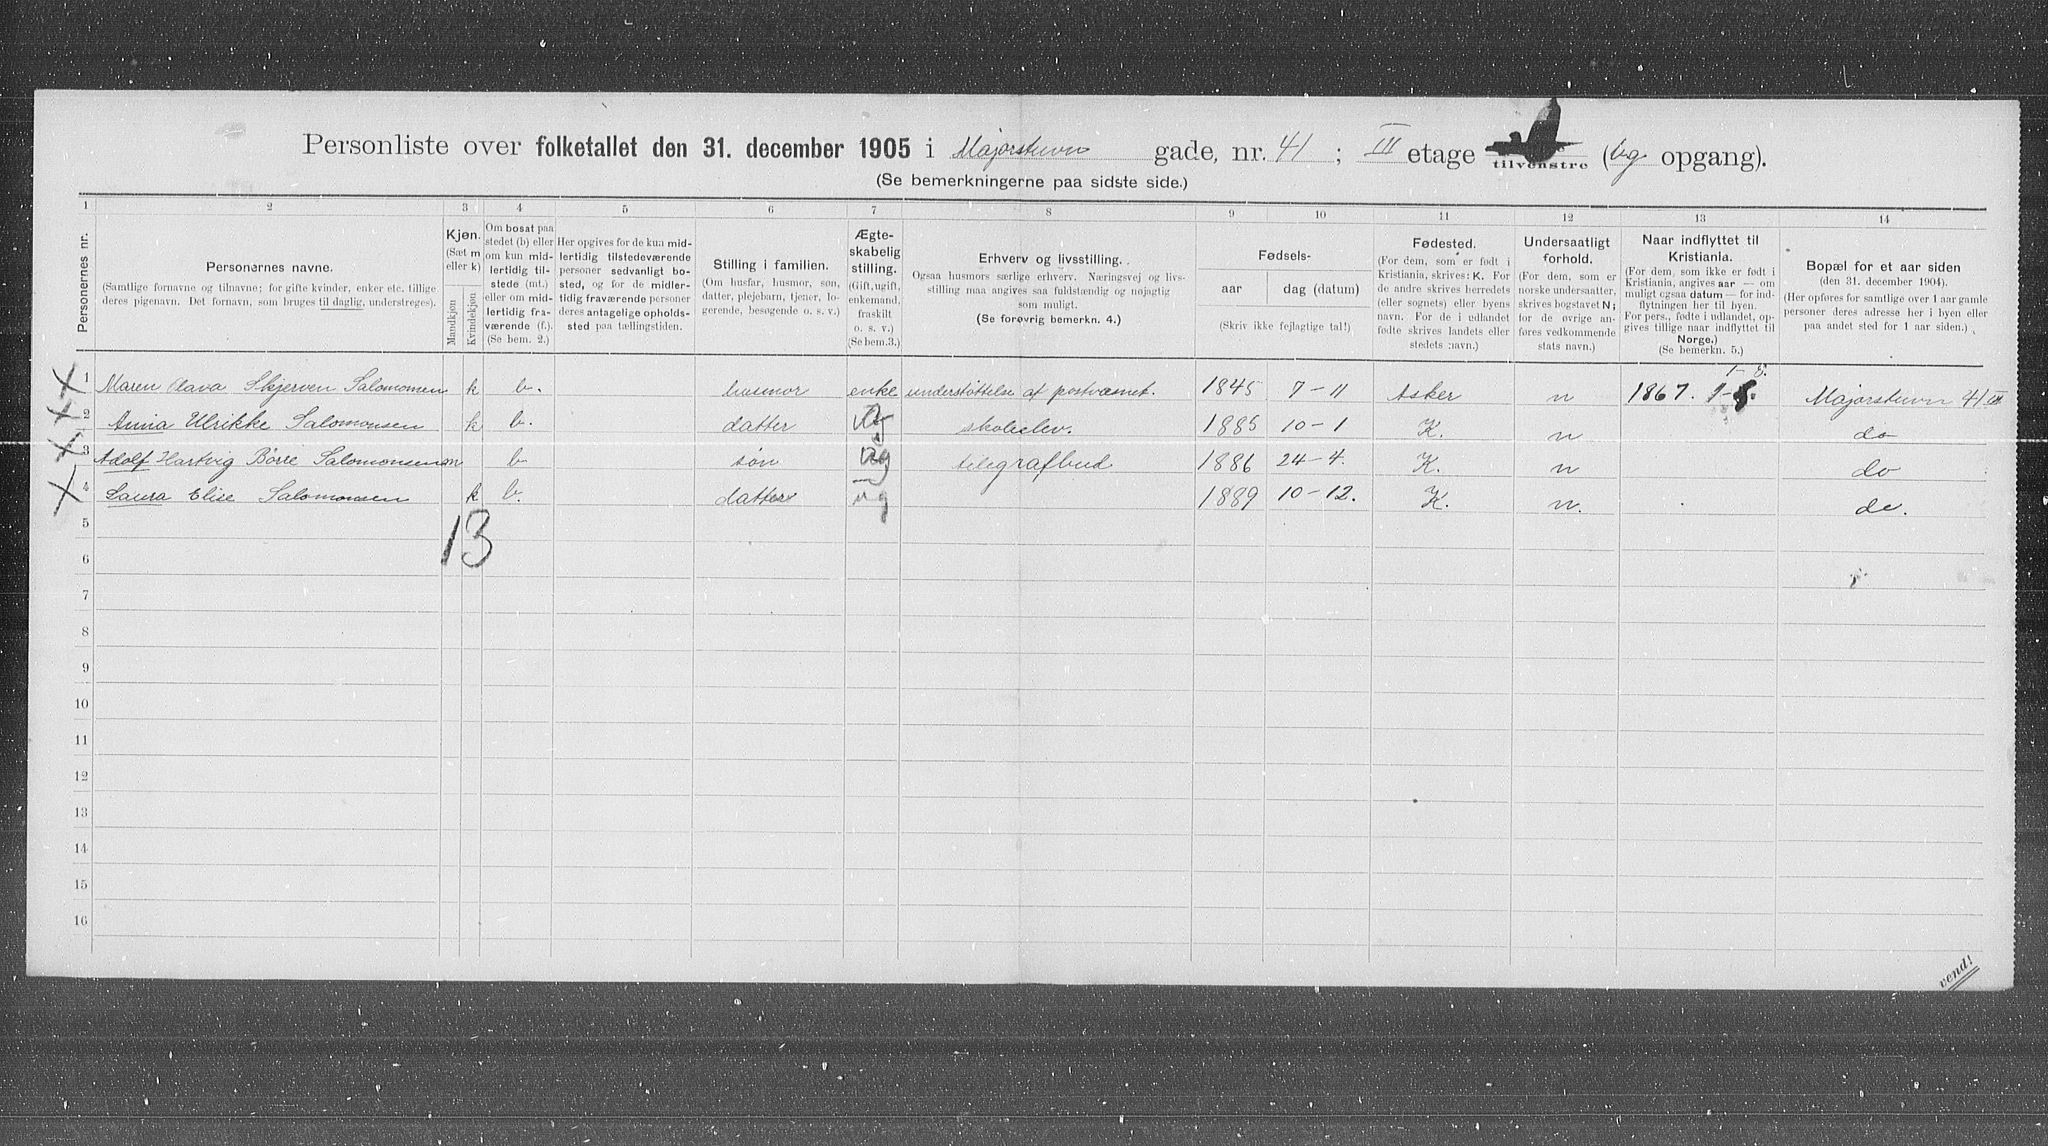 Personliste over folketallet den 31. december 1905 i Majorstuvn gade, nr. 41 ; III etage tilvenstre (bg opgang).
(Se bemerkningerne paa sidste side.)
1 2 3 4 5 6 7 8 9 10 11 12 13 14
Personernes nr.
Personernes navne.
(Samtlige fornavne og tilnavne; for gifte kvinder, enker etc. tillige deres pigenavn. Det fornavn, som bruges til daglig, understreges).
Kjøn.
(Sæt m eller k)
Mandkjøn
Kvindekjøn
Om bosat paa stedet (b) eller om kun midlertidig tilstede (mt.) eller om midlertidig fraværende (f.). (Se bem. 2.)
Her opgives for de kun midlertidig tilstedeværende personer sedvanligt bosted, og for de midlertidig fraværende personer deres antagelige opholdssted paa tællingstiden.
Stilling i familien.
(Om husfar, husmor, søn, datter, plejebarn, tjener, logerende, besøgende o. s. v.)
Ægteskabelig stilling.
(Gift, ugift, enkemand, fraskilt o. s. v.)
(Se bem.3.)
Erhverv og livsstilling.
Ogsaa husmors særlige erhverv. Næringsvej og livsstilling maa angives saa fuldstændig og nøjagtig som muligt.
(Se forøvrig bemerkn. 4.)
Fødsels-
aar
dag (datum)
(Skriv ikke fejlagtige tal!)
Fødested.
(For dem, som er født i Kristiania, skrives: K. For de andre skrives herredets (eller sognets) eller byens navn. For de i udlandet fødte skrives landets eller stedets navn.)
Undersaatligt forhold.
(For dem, som er norske undersaatter, skrives bogstavet N; for de øvrige anføres vedkommende stats navn.)
Naar indflyttet til Kristiania.
(For dem, som ikke er født i Kristiania, angives aar — om muligt ogsaa datum — for indflytningen her til byen. For pers., fødte i udlandet, opgives tillige naar indflyttet til Norge.)
(Se bemerkn. 5.)
Bopæl for et aar siden
(den 31. december 1904).
(Her opføres for samtlige over 1 aar gamle personer deres adresse her i byen eller paa andet sted for 1 aar siden.)
1 Maren Skjerven Salomonsen k b. husmor enke understöttelse af postvæsnet. 1845 7-11 Asker n 1867. 1-8. Majorstuvn 41 III
2 Anna Ulrikke Salomonsen k b. datter skoleelev. 1885 10-1 K. n do
3 Adolf Hartvig Börre Salomonsen m b søn ug telegrafbud 1886 24-4. K. n do
4 Laura Elise Salomonsen k b. datter ug 1889 10-12. K. n. do.
13
5
6
7
8
9
10
11
12
13
14
15
16
vend!